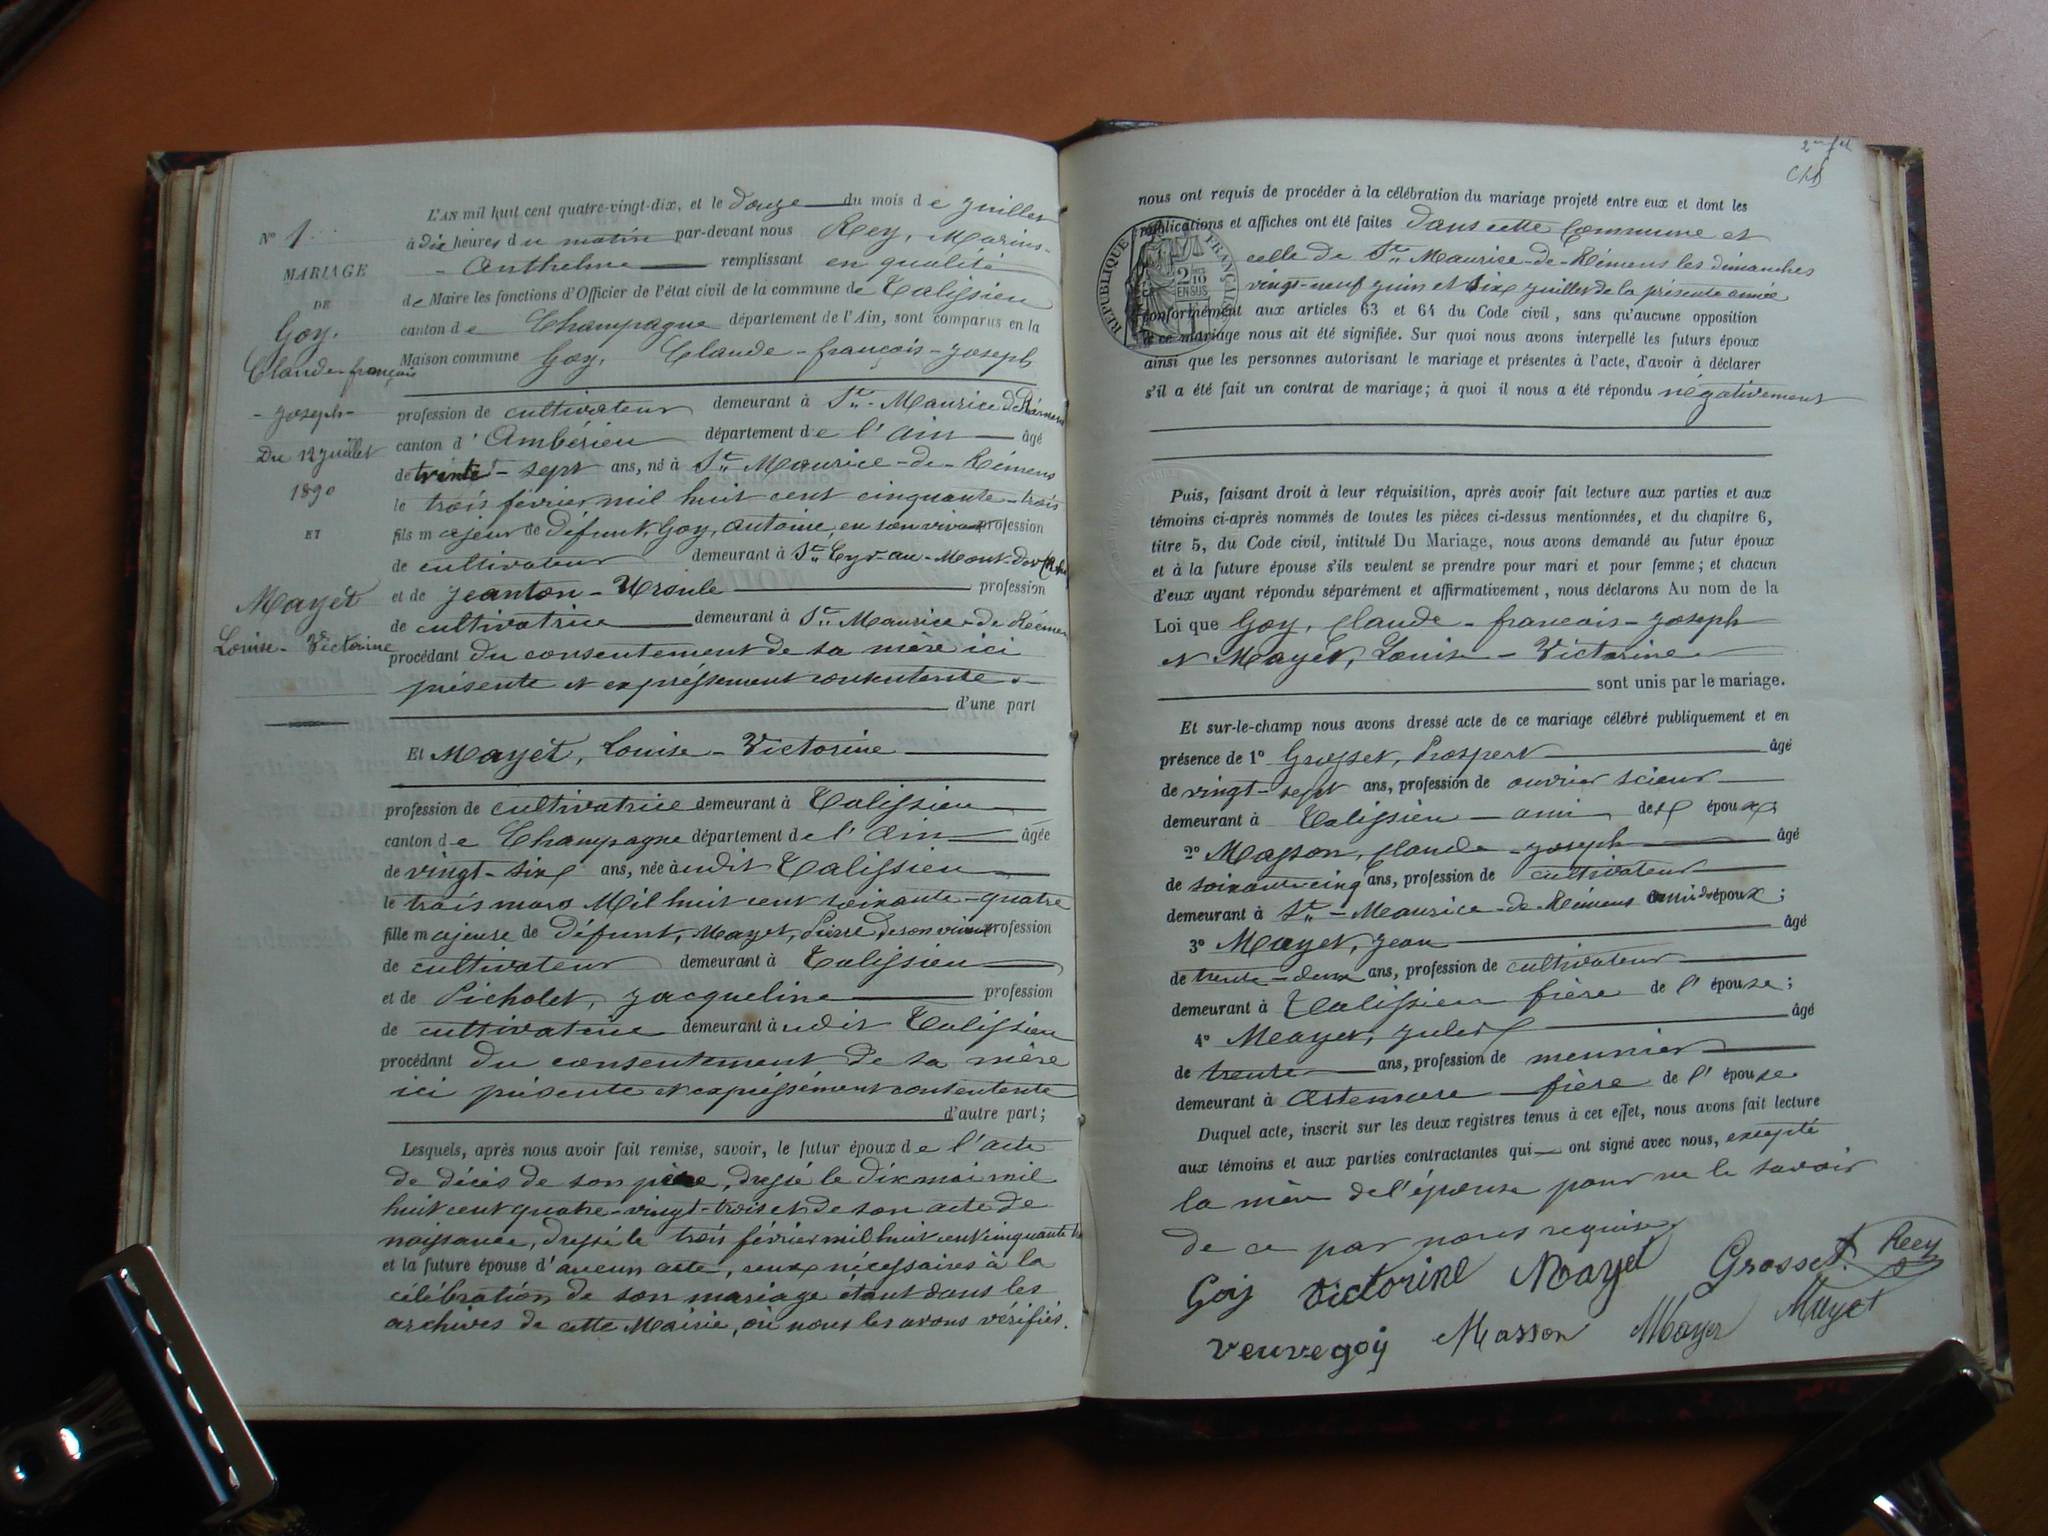 N° 1.
MARIAGE
DE
Goy.
Claude-françois
-joseph-
Du 12 juillet
1890
ET
Mayet
Louise-Victorine
L'AN mil huit cent quatre-vingt-dix, et le douze du mois de juillet
à dix heures du matin par-devant nous Rey, Marius-
-Anthelme remplissant en qualité
de Maire les fonctions d'Officier de l'état civil de la commune de Talissieu
canton de Champagne département de l'Ain, sont comparus en la
Maison commune Goy, Claude-françois-joseph
profession de cultivateur demeurant à St-Maurice de Rémens
canton d'Ambérieu département de l'Ain âgé
de trente-sept ans, né à St Maurice-de-Rémens
le trois février mil huit cent cinquante-trois
fils majeur de défunt Goy, Antoine, en son vivant profession
de cultivateur demeurant à St Cyr-au-Mont-Dor
et de Jeanton-Ursule profession
de cultivatrice demeurant à St Maurice-de Rémens
procédant du consentement de sa mère ici
présente et expressement consentente.
d'une part
Et Mayet, Louise-Victorine
profession de cultivatrice demeurant à Talissieu
canton de Champagne département de l'Ain âgée
de vingt-six ans, née audit Talissieu
le trois mars Mil huit cent soixante-quatre
fille majeure de défunt, Mayet, Pierre, de son vivant profession
de cultivateur demeurant à Talissieu
et de Picholet, Jacqueline profession
de cultivatrice demeurant audit Talissieu
procédant du consentement de sa mère
ici présente et expressément consentente
d'autre part;
Lesquels, après nous avoir fait remise, savoir, le futur époux de l'acte
de décès de son père, dressé le dix mai mil
huit cent quatre-vingt-trois et de son acte de
naissance, dressé le trois février mil huit cent cinquante
et la future épouse d'aucun acte, ceux nécessaires à la
célébration de son mariage étant dans les
archives de cette Mairie, où nous les avons vérifiés.
nous ont requis de procéder à la célébration du mariage projeté entre eux et dont les
publications et affiches ont été faites dans cette Commune et
celle de St Maurice-de-Rémens les dimanches
vingt-neuf juin et six juillet de la présente année
conformément aux articles 63 et 64 du Code civil, sans qu'aucune opposition
à ce mariage nous ait été signifiée. Sur quoi nous avons interpellé les futurs époux
ainsi que les personnes autorisant le mariage et présentes à l'acte, d'avoir à déclarer
s'il a été fait un contrat de mariage; à quoi il nous a été répondu négativement
RÉPUBLIQUE FRANÇAISE
2
EN SUS
Puis, faisant droit à leur réquisition, après avoir fait lecture aux parties et aux
témoins ci-après nommés de toutes les pièces ci-dessus mentionnées, et du chapitre 6,
titre 5, du Code civil, intitulé Du Mariage, nous avons demandé au futur époux
et à la future épouse s'ils veulent se prendre pour mari et pour femme; et chacun
d'eux ayant répondu séparément et affirmativement, nous déclarons Au nom de la
Loi que Goy, Claude-francois-joseph
et Mayet, Louise-Victorine
sont unis par le mariage.
Et sur-le-champ nous avons dressé acte de ce mariage célébré publiquement et en
présence de 1° Grosset, Prosper âgé
de vingt-sept ans, profession de ouvrier scieur
demeurant à Talissieu ami des époux;
2° Masson, Claude-joseph âgé
de soixante cinq ans, profession de cultivateur
demeurant à St-Maurice-de-Rémens ami de époux;
3° Mayet, Jean âgé
de trente-deux ans, profession de cultivateur
demeurant à Talissieu frère de l'épouse;
4° Mayet, Jules âgé
de trente ans, profession de meunier
demeurant à Artemare frère de l'épouse
Duquel acte, inscrit sur les deux registres tenus à cet effet, nous avons fait lecture
aux témoins et aux parties contractantes qui ont signé avec nous, excepté
la mère de l'épouse pour ne le savoir
de ce par nous requise,
Goy Victorine Mayet Grosset. Rey
veuve goy Masson Mayet Mayet